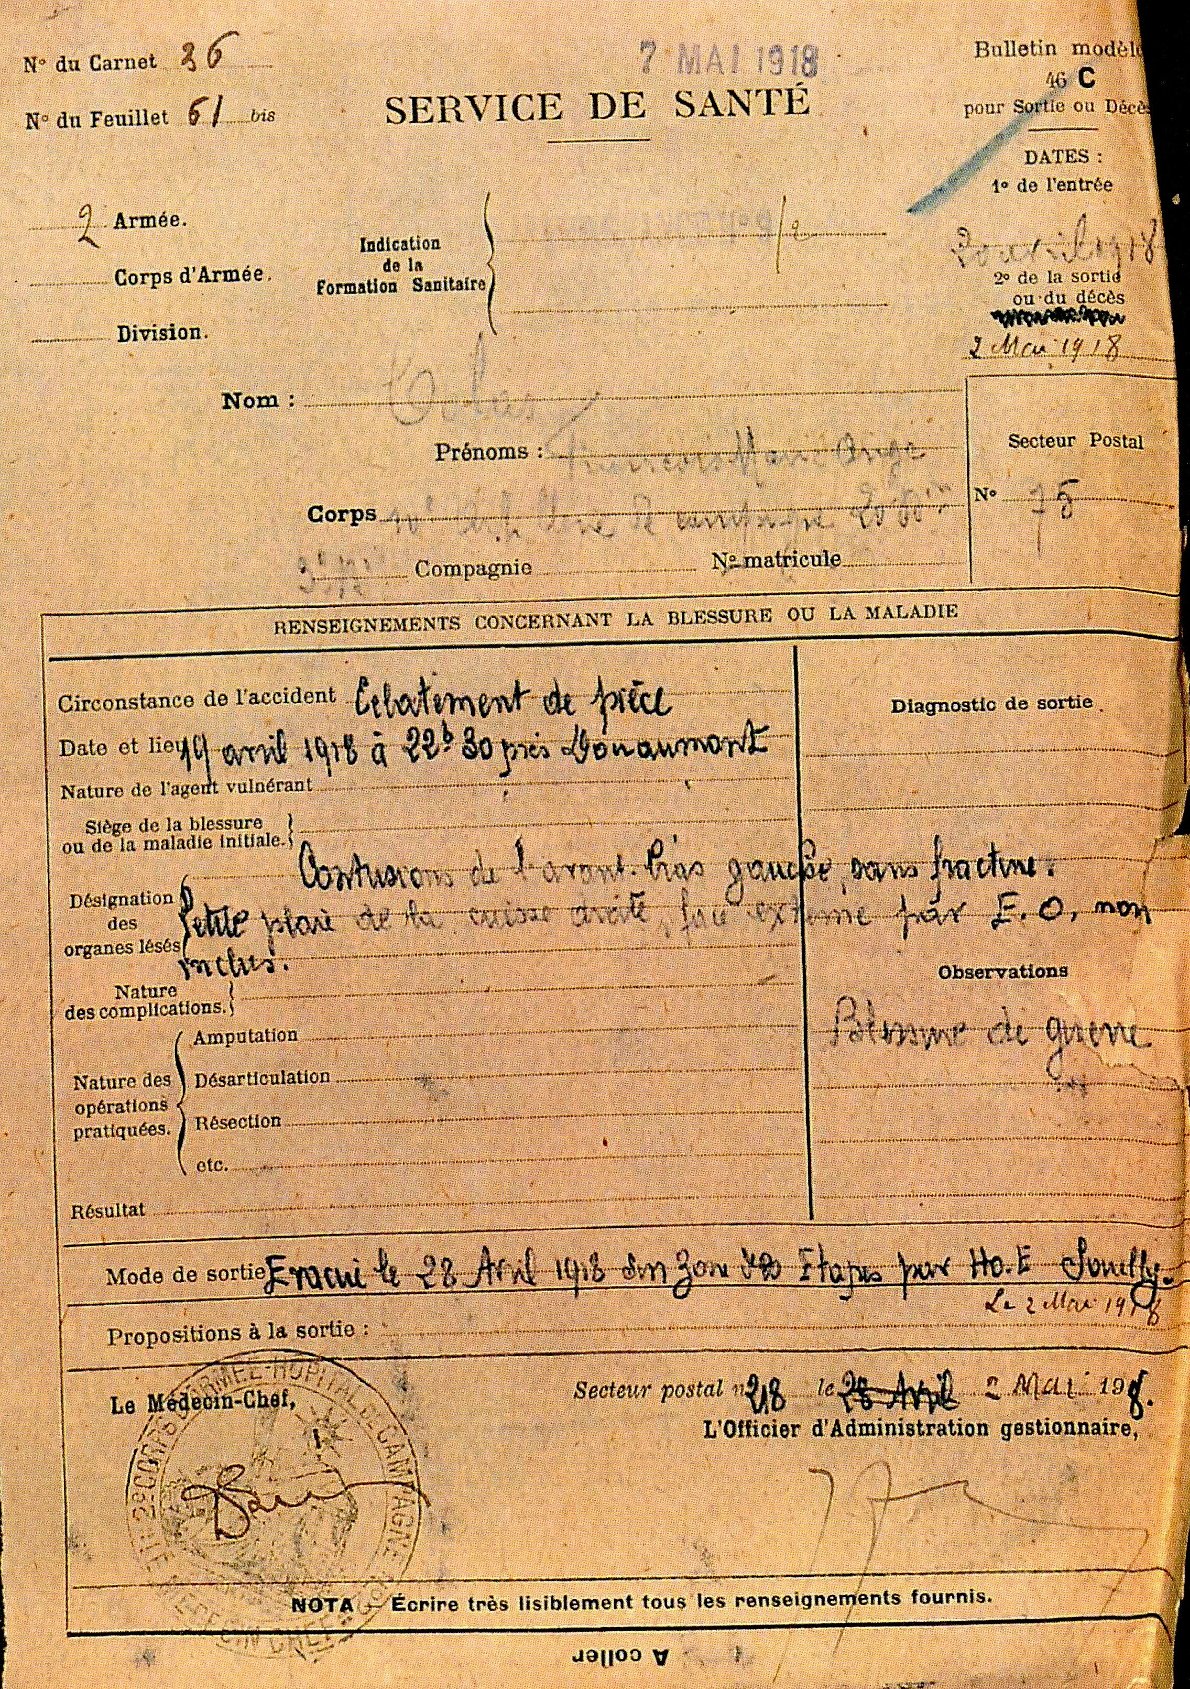 N° du Carnet 36
7 MAI 1918
Bulletin modèle
46 C
pour Sortie ou Décès
N° du Feuillet 61 bis
SERVICE DE SANTÉ
DATES :
1° de l'entrée
2 Armée.
Corps d'Armée.
Division.
Indication
de la
Formation Sanitaire
1918
2° de la sortie
ou du décès
2 Mai 1918
Nom :
Prénoms : François Marie Ange
Secteur Postal
N° 75
Corps de campagne
Compagnie N° matricule
RENSEIGNEMENTS CONCERNANT LA BLESSURE OU LA MALADIE
Circonstance de l'accident Eclatement de pièce
Date et lieu 19 avril 1918 à 22h30 près Douaumont
Nature de l'agent vulnérant
Siège de la blessure
ou de la maladie initiale.
Diagnostic de sortie.
Désignation
des
organes lésés
Contusions de l'avant-bras gauche, sans fracture.
Petite plaie de la cuisse droite, face externe par E. O. non
inclus.
Nature
des complications.
Observations
Blessure de guerre
Nature des
opérations
pratiquées.
Amputation
Désarticulation
Résection
etc.
Résultat
Mode de sortie Evacué le 28 Avril 1918 sur Zone des Etapes par Ho.E Souilly.
Le 2 Mai 1918
Propositions à la sortie :
Le Médecin-Chef,
Secteur postal n° 218 le 28 Avril 2 Mai 1918.
L'Officier d'Administration gestionnaire,
2e CORPS D'ARMEE - HOPITAL DE CAMPAGNE
LE MEDECIN CHEF
NOTA Écrire très lisiblement tous les renseignements fournis.
A coller